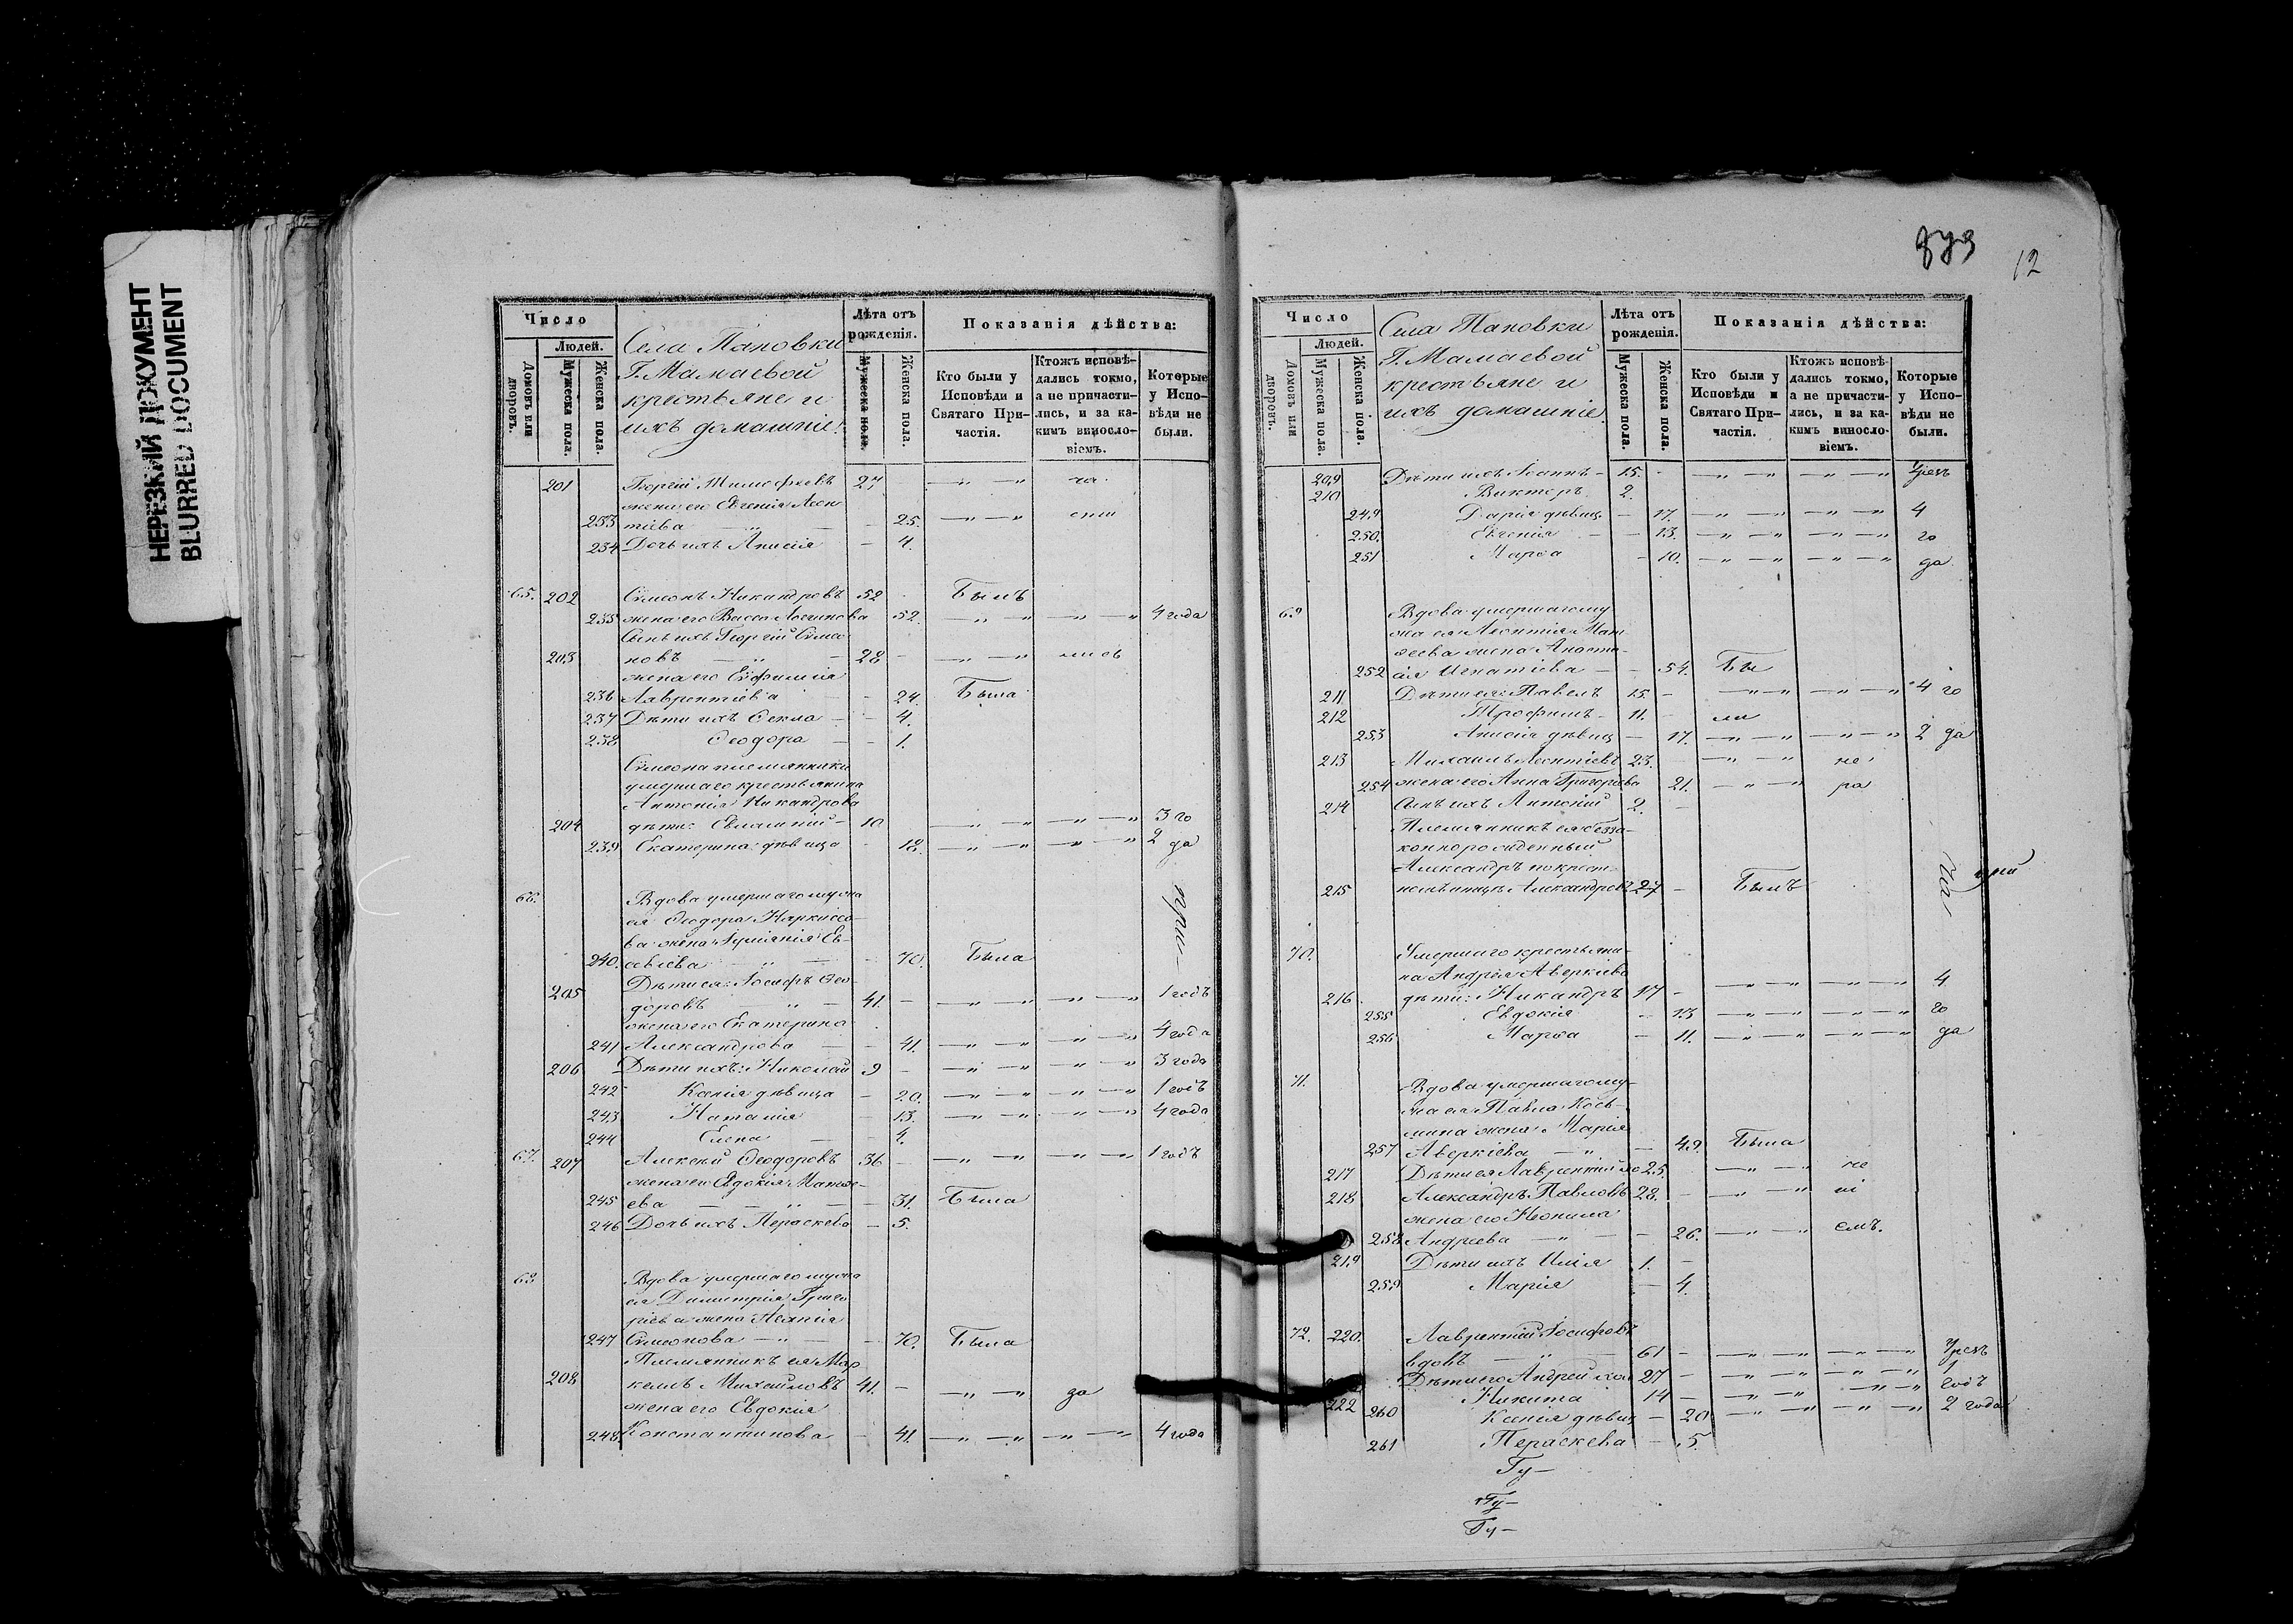 НЕРЕЗКИЙ ДОКУМЕНТ
BLURRED DOCUMENT
12
Число
Людей.
Домовъ или дворовъ.
Мужеска пола.
Женска пола.
Села Пановки
Г. Мамаевой
крестьяне и
ихъ домашніе.
Лѣта отъ рожденія.
Мужеска пола.
Женска пола.
Показанія дѣйства:
Кто были у Исповѣди и Святаго Причастія.
Ктожъ исповѣдались токмо, а не причастились, и за какимъ винословіемъ.
Которые у Исповѣди не были.
201 Георгій Тимофеевъ 27
жена его Евгенія Леон
233 тіева 25.
234 Дочь ихъ Анисія 4.
65. 202 Симеонъ Никандровъ 52 Былъ
235 жена его Васса Логинова 52. 4 года
Сынъ ихъ Георгій Симео
203 новъ 28
жена его Евфимія
236 Лаврентіева 24. Была
237 Дѣти ихъ Ѳекла 4.
238 Ѳеодора 1.
Симеона племянники
умершаго крестьянина
Антонія Никандрова
204 дѣти: Евлампій 10 3 го
239 Екатерина дѣвица 18. 2 да
66. Вдова умершаго мужа
ея Ѳеодора Наркиссо
ва жена
240. 70. Была
при
205 Дѣти ея: Іосифъ Ѳео
доровъ 41. 1 годъ
жена его Екатерина
241 Александрова 41. 4 года
206 Дѣти ихъ: Николай 9 3 года
242 Ксенія дѣвица 20. 1 годъ
243 Наталія 13. 4 года
244 Елена 4.
67. 207 Алексѣй Ѳеодоровъ 36 1 годъ
жена его Евдокія Матѳе
245 ева 31. Была
246 Дочь ихъ Параскева 5.
68. Вдова умершаго мужа
ея Димитрія Григо
ріева жена
247 Симеонова 70. Была
Племянникъ ея Мар
208 келлъ Михайловъ 41. за
жена его Евдокія
248 Константинова 41. 4 года
Число
Людей.
Домовъ или дворовъ.
Мужеска пола.
Женска пола.
Села Пановки
Г. Мамаевой
крестьяне и
ихъ домашніе
Лѣта отъ рожденія.
Мужеска пола.
Женска пола.
Показанія дѣйства:
Кто были у Исповѣди и Святаго Причастія.
Ктожъ исповѣдались токмо, а не причастились, и за какимъ винословіемъ.
Которые у Исповѣди не были.
209 Дѣти ихъ Іоаннъ 15.
210 Викторъ 2.
249 Дарія дѣвиц. 17. 4
250. Евгенія 13. го
251 Марѳа 10. да
69 Вдова умершаго му
жа ея Леонтія Мат
ѳеева жена Анаста
252 сія Игнатіева 54. Бы
211 Дѣти ея: Павелъ 15. 4 го
212 Трофимъ 11. ли
253 Анисія дѣвиц 17. 2 да
213 Михаилъ Леонтіевъ 23. не
254 жена его Анна Григорьева 21. ра
214 Сынъ ихъ Антоній 2.
Племянникъ ея безза
коннорожденный
Александръ по крест
215 номъ отцѣ Александровъ 27 Былъ
70. Умершаго крестьяни
на Андрея Аверкіева
216 дѣти: Никандръ 17 4
255 Евдокія 13 го
256 Марѳа 11. да
71. Вдова умершаго му
жа ея Павла Козь
мина жена Марія
257 Аверкіева 49. Была
217 Дѣти ея Лаврентій 25. не
218 Александръ Павловъ 28.
жена его Неонила
258 Андреева 26. емъ.
219 Дѣти ихъ Илія 1.
259 Марія 4.
72. 220. Лаврентій Іосифовъ
вдовъ 61
Дѣти его Андрей хол 27 1
222 Никита 14 годъ
260 Ксенія дѣвиц 20 2 года
261 Параскева 5.